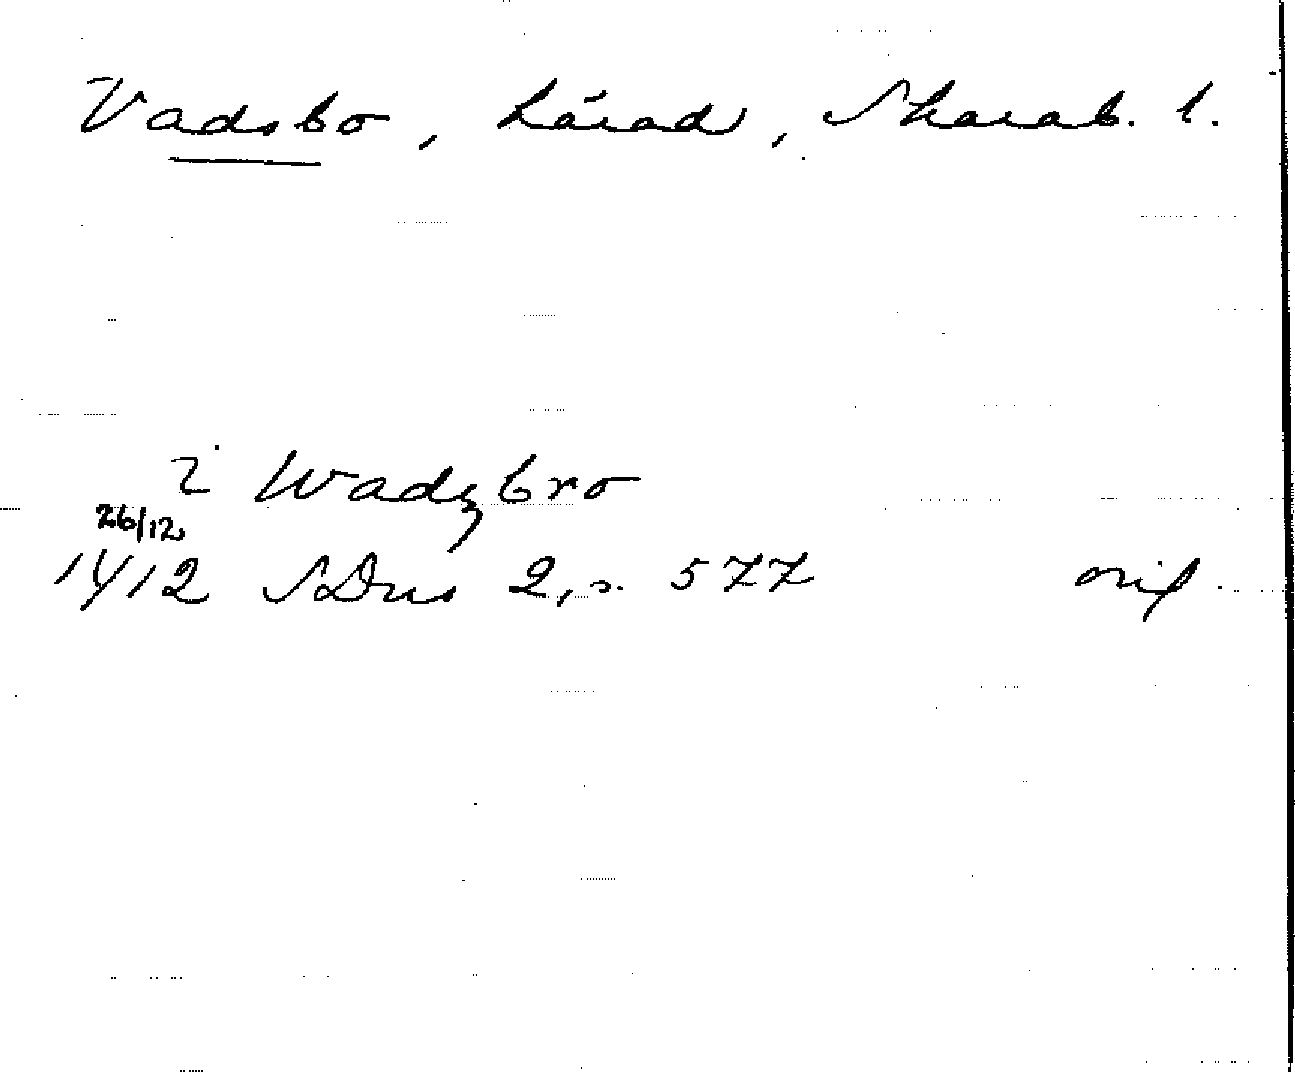 Vadsbo, härad, Skarab. l.
i Wadzbro
26/12
14/12 SDns 2, s. 577 orig.